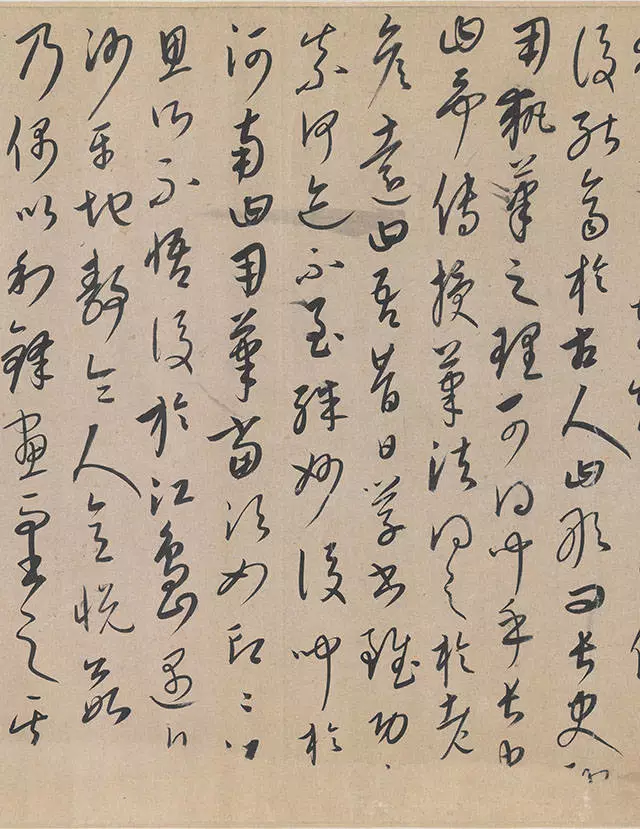 後能齊於古人曰敢問長史神
用執筆之理可得聞乎長史
曰予傳授筆法得之於老
彥遠曰吾昔日學書雖功
奈何迹不至殊妙後聞於
河南曰用筆當須如印〻
思所不悟後於江島遇
沙平地靜令人意悅欲
乃偶以利鋒畫而書之其